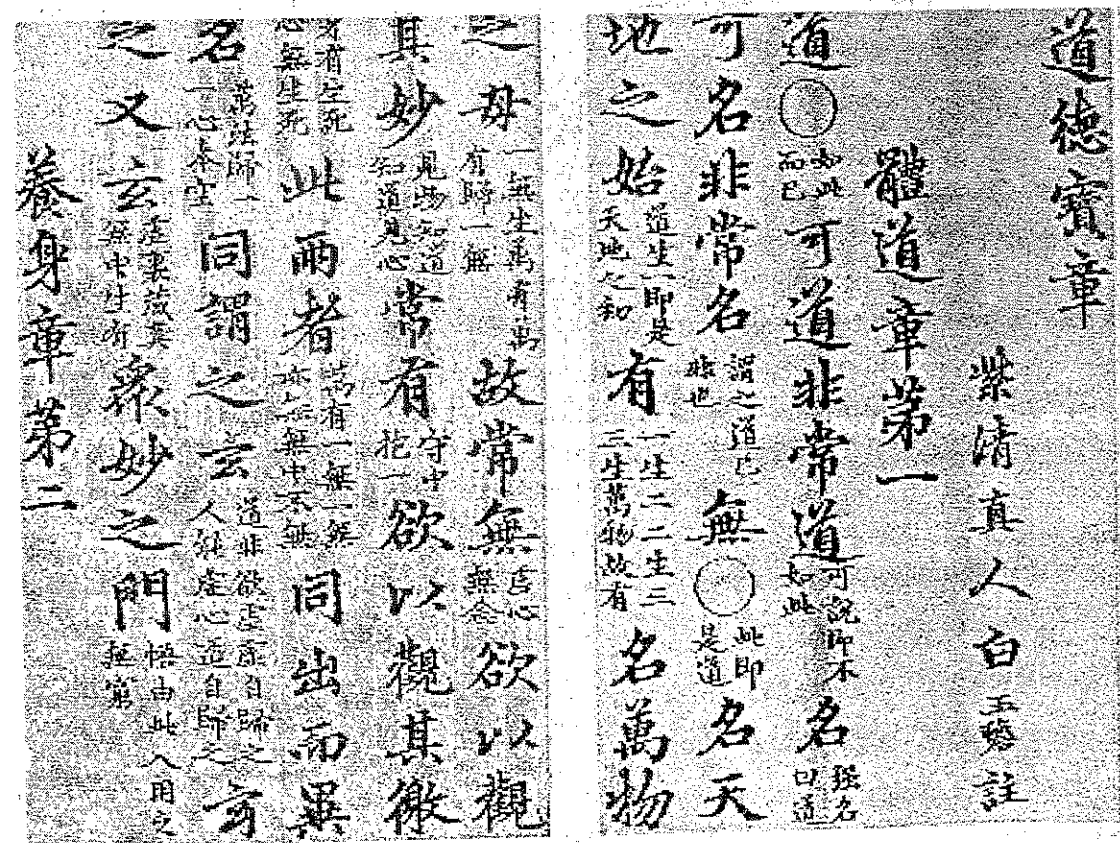 道德寶章
紫清真人白玉蟾註
體道章第一
道○如此而已可道非常道可說即不如此名強名曰道
可名非常名謂之道已非也無○此即是道名天
地之始道生一即是天地之和有一生二二生三三生萬物故有名萬物
之母一無生萬有萬有歸一無故常無忘心無念欲以觀
其妙見物知道知道見心常有守中抱一欲以觀其徼
身有生死心無生死此兩者萬有一無一無亦無無中不無同出而異
名萬法歸一一心本空同謂之玄道非欲虛虛自歸之人能虛心道自歸之玄
之又玄虛裏藏真無中生有眾妙之門悟由此入用之無窮
養身章第二